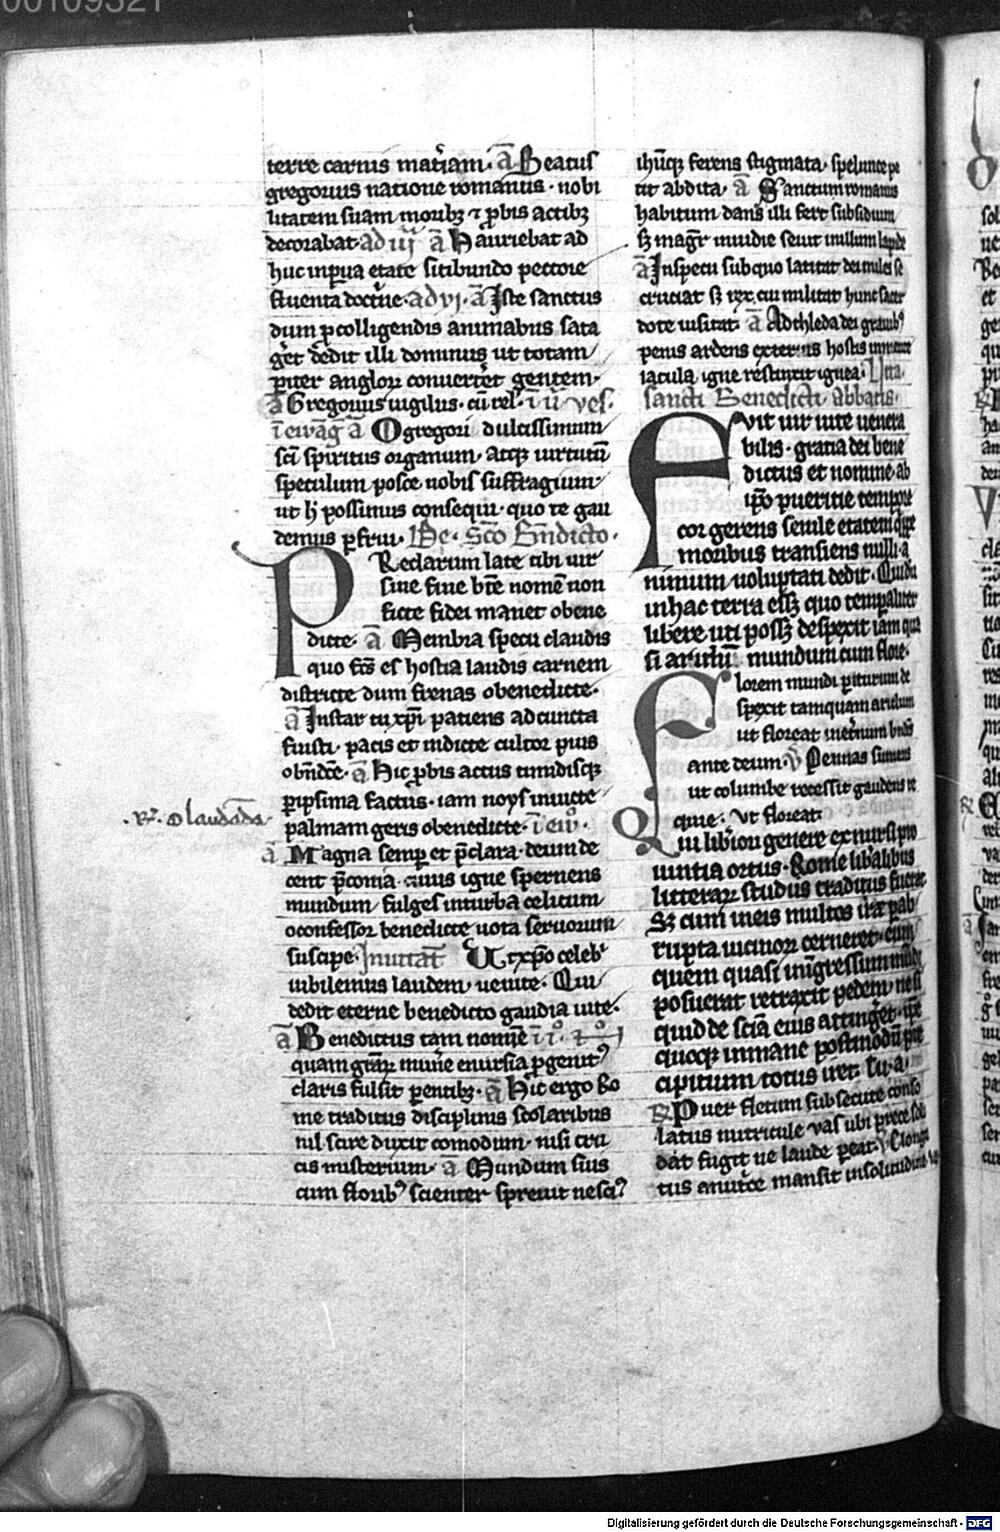 00109321
terre carnis mat̄iam. a̅ Beatus
gregorius natione romanus. nobi
litatem suam moribꝫ ⁊ ꝓbis actibꝫ
decorabat. ad iij a̅ Hauriebat ad
huc in ꝑua etate sitibundo pectore
fluenta doct̄ne. ad vj. a̅ Iste sanctus
dum ꝓ colligendis animabus sata
geret dedit illi dominus ut totam
ꝑiter angloꝝ conuerteret gentem.
a̅ Gregorius uigilus. cū rel. i ij ves.
i ewāg a̅ O gregori dulcissimum
sc̄i spiritus organum. atqꝫ uirtutū
speculum posce nobis suffragium
ut hͥ possimus consequi. quo te gau
demus ꝑfrui. De. sc̄o bn̄dicto.
Preclarum late tibi uir
sine fine bt̄e nomē non
ficte fidei manet o bene
dicte. a̅ Membra specu claudis
quo fc̄s es hostia laudis carnem
districte dum frenas o benedicte.
a̅ Instar tu xp̄i patiens ad cuncta
fuisti. pacis et indicte cultor pius
o bn̄dc̄e. a̅ Hic ꝓbis actus timdisqꝫ
ꝑipsima factus. iam noys inuicte
palmam geris o benedicte. i ew̄.
.R. O laudāda.
a̅ Magna semꝑ et p̄clara. deum de
cent p̄conia. cuius igne spernens
mundum fulges in turba celitum
o confessor benedicte uota seruorum
suscipe. Inuitat̄ Ut xp̄o celebr̄
iubilemus laudem. uenite. Qui
dedit eterne benedicto gaudia uite.
a̅ Benedictus tam nomīe i i°.
quam grāꝝ munere enursia ꝓgenitꝰ
claris fulsit ꝑentibꝫ. a̅ Hic ergo Ro
me traditus disciplinis scolaribus
nil scire duxit comodum. nisi cru
cis misterium. a̅ Mundum suis
cum floribꝰ scienter spreuit nesciꝰ
ihūqꝫ ferens stigmata. spelunce pe
tit abdita. a̅ Sanctum romanus
habitum dans illi fert subsidium
sꝫ magr̄ inuidie seuit in illum lapide
a̅ In specu sub quo latitat dei miles se
cruciat sꝫ rex cui militat hunc sacer
dote uisitat. a̅ Ad thleda dei grauibꝰ
penis ardens externis hostis inmittit
iacula. igne restinxit ignea. Vita.
sancti Benedicti abbatis.
Fvit uir uite uenera
bilis. gratia dei bene
dictus et nomine. ab
ip̄o pueritie tempore
cor gerens senile etatem qͥppe
moribus transiens nulli a
nimum uoluptati dedit. Qui dū
in hac terra essꝫ quo temꝑaliter
libere uti possꝫ despexit iam qua
si aridū mundum cum flore.
Florem mundi ꝑiturum de
spexit tamquam aridum
ut floreat in et̄num
ante deum. v̄ Pennas sumens
ut columbe recessit gaudens re
quie. Ut floreat.
Qui liberiori genere ex nursi pro
uintia ortus. Rome liberalibus
litterarꝝ studiis traditus fuerat
Sꝫ cum in eis multos ire ꝑ ab
rupta uicioꝝ cerneret. eum
quem quasi in īgressum mūdi
posuerat retraxit pedem. ne si
quid de sciā eius attinḡet. ip̄e
quoqꝫ inmane postmodū pre
cipitium totus iret. Tu a.
R Puer fletum subsecute conso
latus nutricule vas ubi prece soli
dat fugit ne laude ꝑeat. v̄ Elonga
tus an nutrice mansit in solitudine